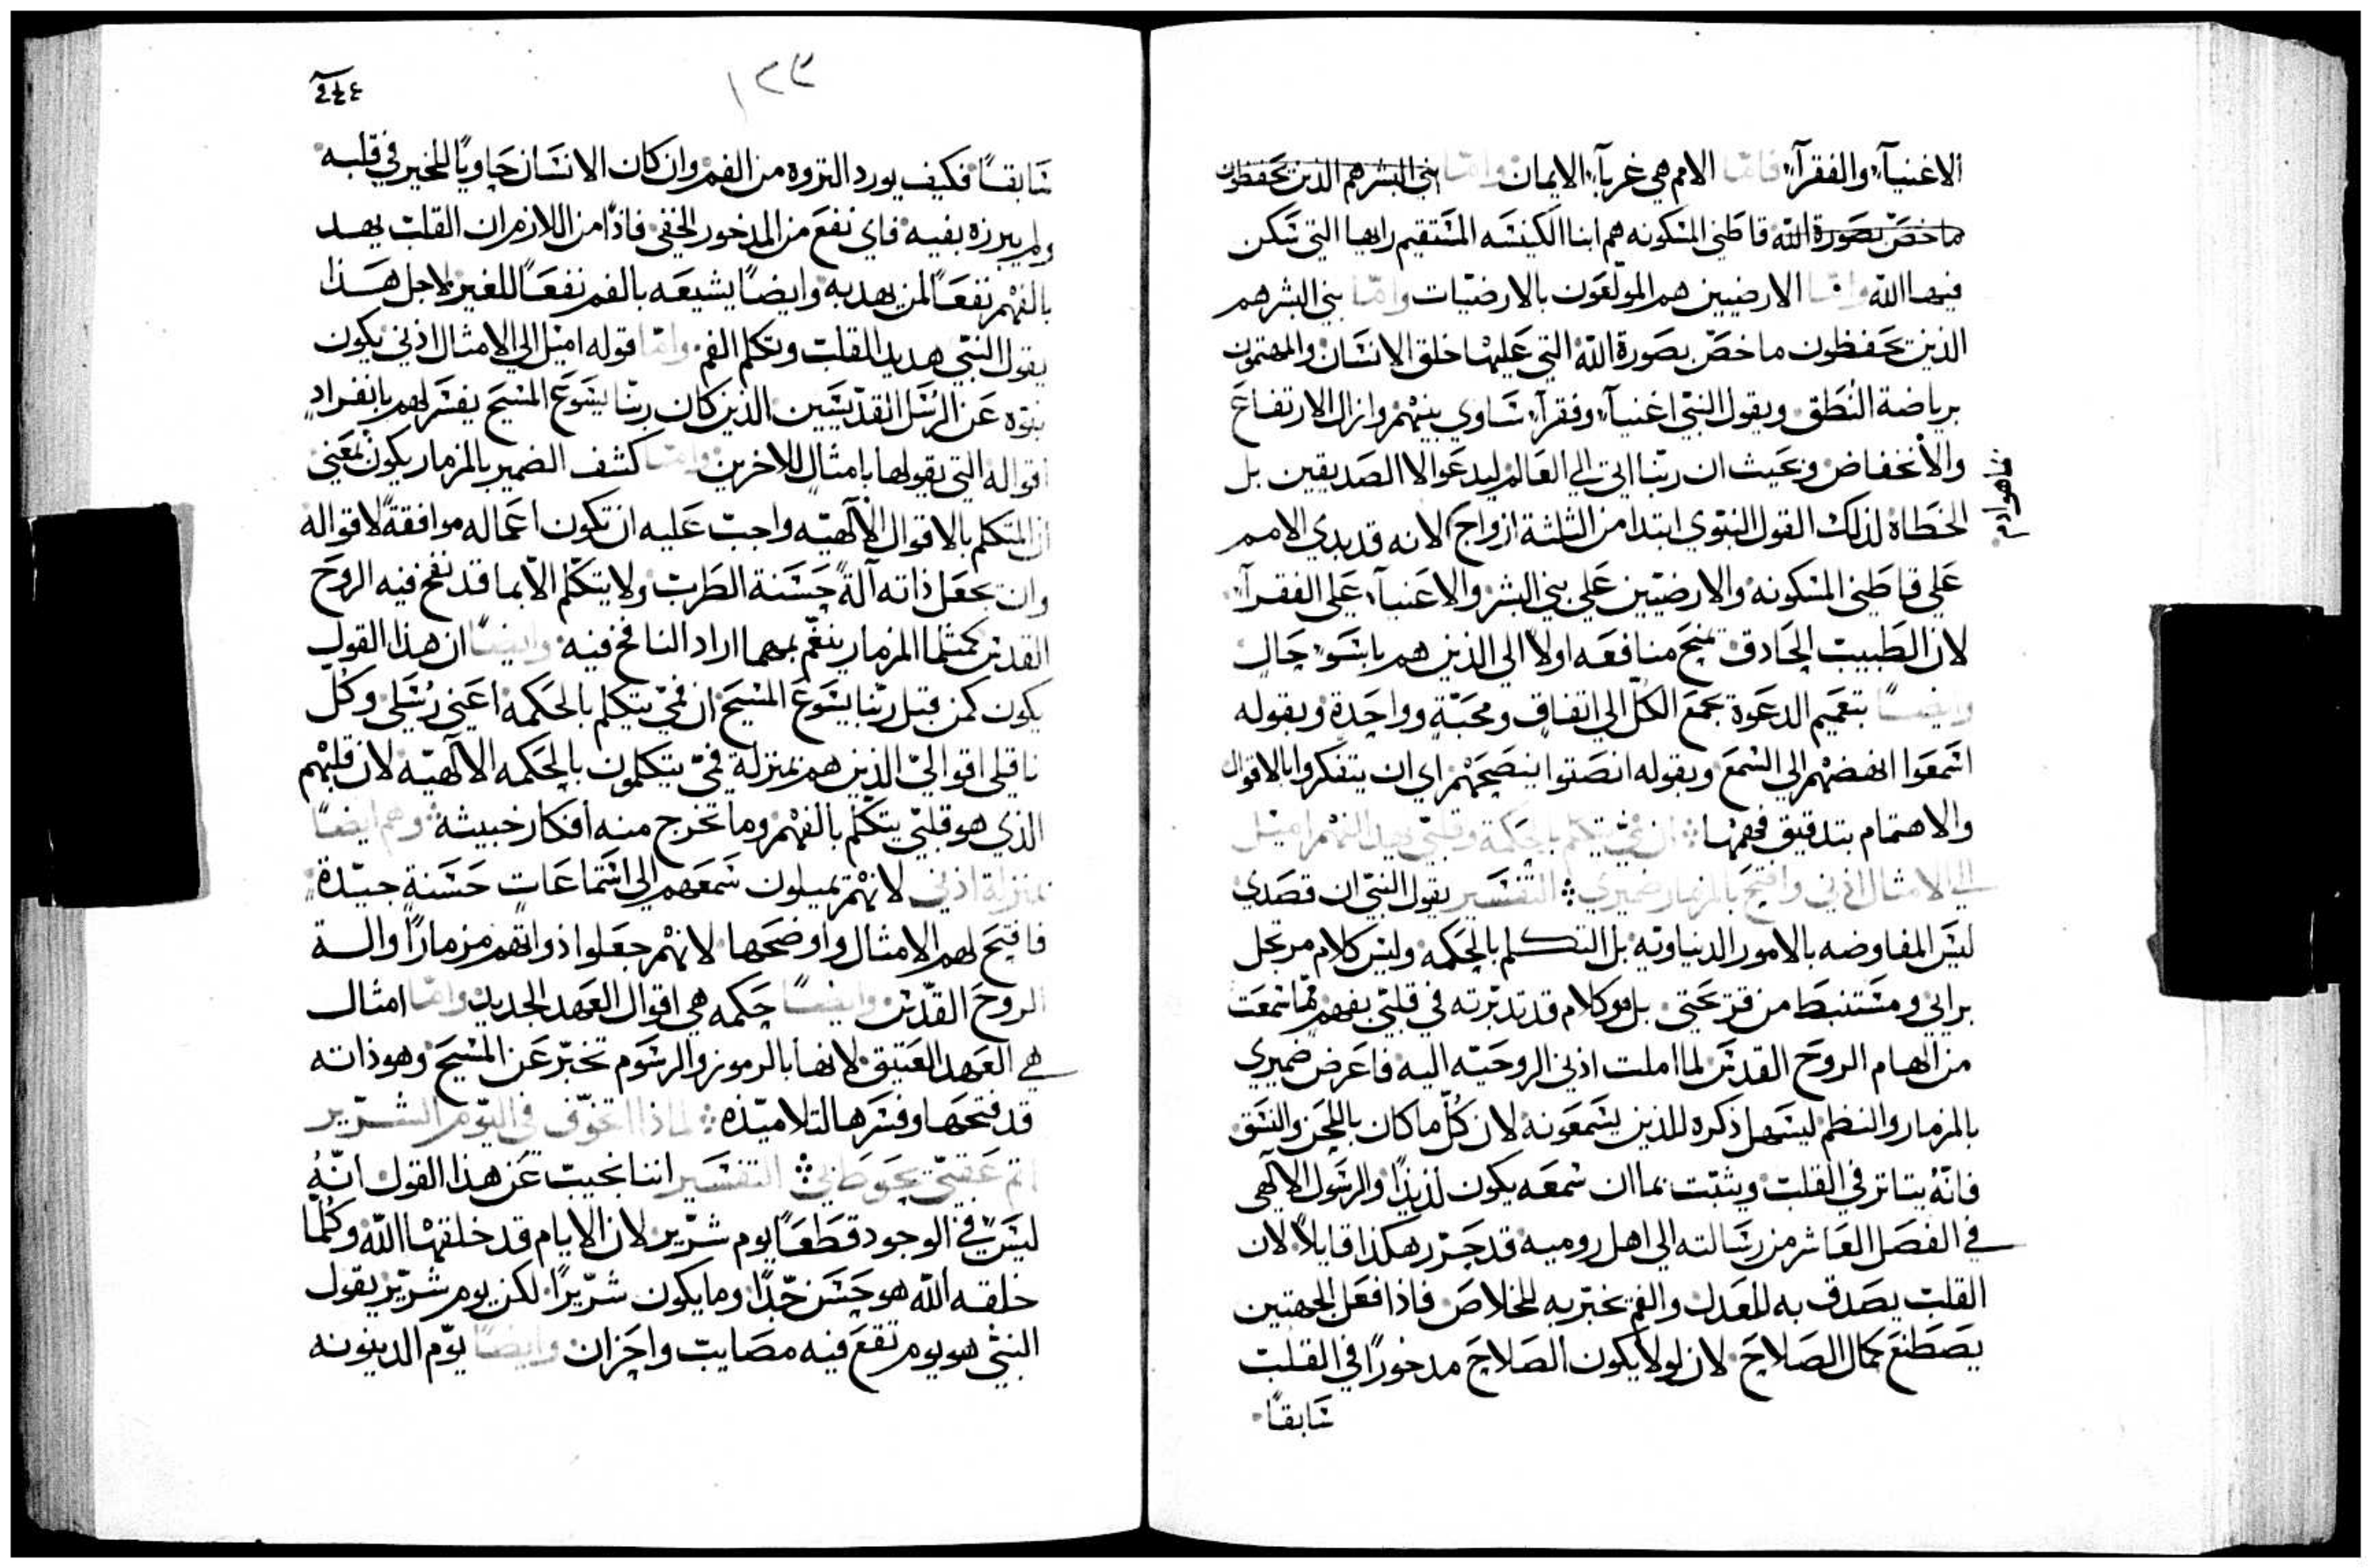 الاغنيآء والفقرآء فامّا الامم هي غربآء الايمان وامّا بني البشر هم الذين يحفظون
ما خصّ بصورة الله قاطني المسكونه هم ابنا الكنيسه المستقيم رايها التي سكن
فيها الله وامّا الارضيين هم المولّعون بالارضيّات وامّا بني البشر هم
الذين يحفظون ما خصّ بصورة الله التي عليها خلق الانسان والمهتمون
برياضة النطق ويقول النبيّ اغنيآء وفقرآء ساوي بينهم وازال الارتفاع
والانخفاض وحيث ان ربّنا اتى الي العالم ليدعو الا الصديقين بل
الخطاة لذلك القول النبوي ابتدا من الثلثة ازواج لانه قد بدي الامم
علي قاطني المسكونه والارضيّين علي بني البشر والاغنيآء علي الفقرآء
لان الطبيب الحادق يمنح منافعه اولاً الي الذين هم باسوء حال
وايضاً بتعميم الدعوة يجمع الكلّ الي اتفاق ومحبّة وواحدة وبقوله
اسمعوا انهضهم الي السمع وبقوله انصتوا ينصحهم اي ان يتفكروا بالاقوال
والاهتمام بتدقيق فهمها ان فمي يتكلّم بالحكمة وقلبي يهد الفهم اميل
الي الامثال اذني وافتح بالمزمار ضميري التفسير يقول النبيّ ان قصدي
ليس المفاوضه بالامور الدنياويّه بل التكلم بالحكمه وليس كلام مرتجل
برايي ومستنبط من قريحتي بل هو كلام قد تدبّرته في قلبي بفهم ممّا سمعت
من الهام الروح القدس لما املت اذني الروحيّه اليه فاعرض ضميري
بالمزمار والنظم ليسهل ذكره للذين يسمعونه لان كلّ ما كان باللحن والنسق
فانّه يتاثر في القلب ويثبت بما ان سمعه يكون لذيذاً والرسول الالهي
في الفصل العاشر من رسالته الي اهل روميه قد حرّر هكذا قايلاً لان
القلب يصدق به للعدل والفم يخبّر به للخلاص فاذا فعل الجهتين
يصطنع كمال الصلاح لان لولا يكون الصلاح مدخوراً في القلب
سابقاً
فما هو ادم
١٢٣
سابقاً فكيف يورد الثروه من الفم وان كان الانسان حاوياً للخير في قلبه
ولم يبرزه بفيه فاي نفع من المدخور الخفي فاذاً من اللازم ان القلب يهد
بالفهم نفعاً لمن يهد به وايضاً يشيعه بالفم نفعاً للغير لاجل هذا
يقول النبيّ هديد القلب وتكلم الفم وامّا قوله اميل الي الامثال اذني يكون
بنوّه عن الرسل القدّيسين الذين كان ربّنا يسوع المسيح يفسّر لهم بانفرادٍ
اقواله التي يقولها بامثال للاخرين وامّا كشف الضمير بالمزمار يكون بمعني
ان المتكلم بالاقوال الالهيّه واجب عليه ان تكون اعماله موافقةً لاقواله
وان يجعل ذاته آلةً حسنة الطرب ولا يتكلّم الّا بما قد نفخ فيه الروح
القدس كمثلما المزمار ينغّم بمهما اراد النافخ فيه وايضاً ان هذا القول
يكون كمن قبل ربّنا يسوع المسيح ان فمي يتكلم بالحكمه اعني رسلي وكلّ
ناقلي اقوالي الذين هم بمنزلة فمي يتكلمون بالحكمه الالهيّه لان قلبهم
الذي هو قلبي يتكلّم بالفهم وما تخرج منه افكار خبيثه وهم ايضاً
بمنزلة اذني لانهم يميلون سمعهم الي استماعات حسنةٍ جيّدة
فافتح لهم الامثال واوضحها لانهم جعلوا ذواتهم مزماراً والة
الروح القدّس وايضاً حكمه هي اقوال العهد الجديد وامّا امثال
هي العهد العتيق لانها بالرموز والرسوم تخبّر عن المسيح وهو ذاته
قد فتحها وفسّرها لتلاميذه لماذا اتخوّف في اليوم الشرير
اثم عقبي يحوطني التفسير اننا نجيب عن هذا القول انّهُ
ليس في الوجود قطعاً يوم شرّير لان الايام قد خلقها الله وكلّما
خلقه الله هو حسن جدّاً وما يكون شرّيراً لكن يوم شرّير يقول
النبيّ هو يوم تقع فيه مصايب واحزان وايضاً يوم الدينونه